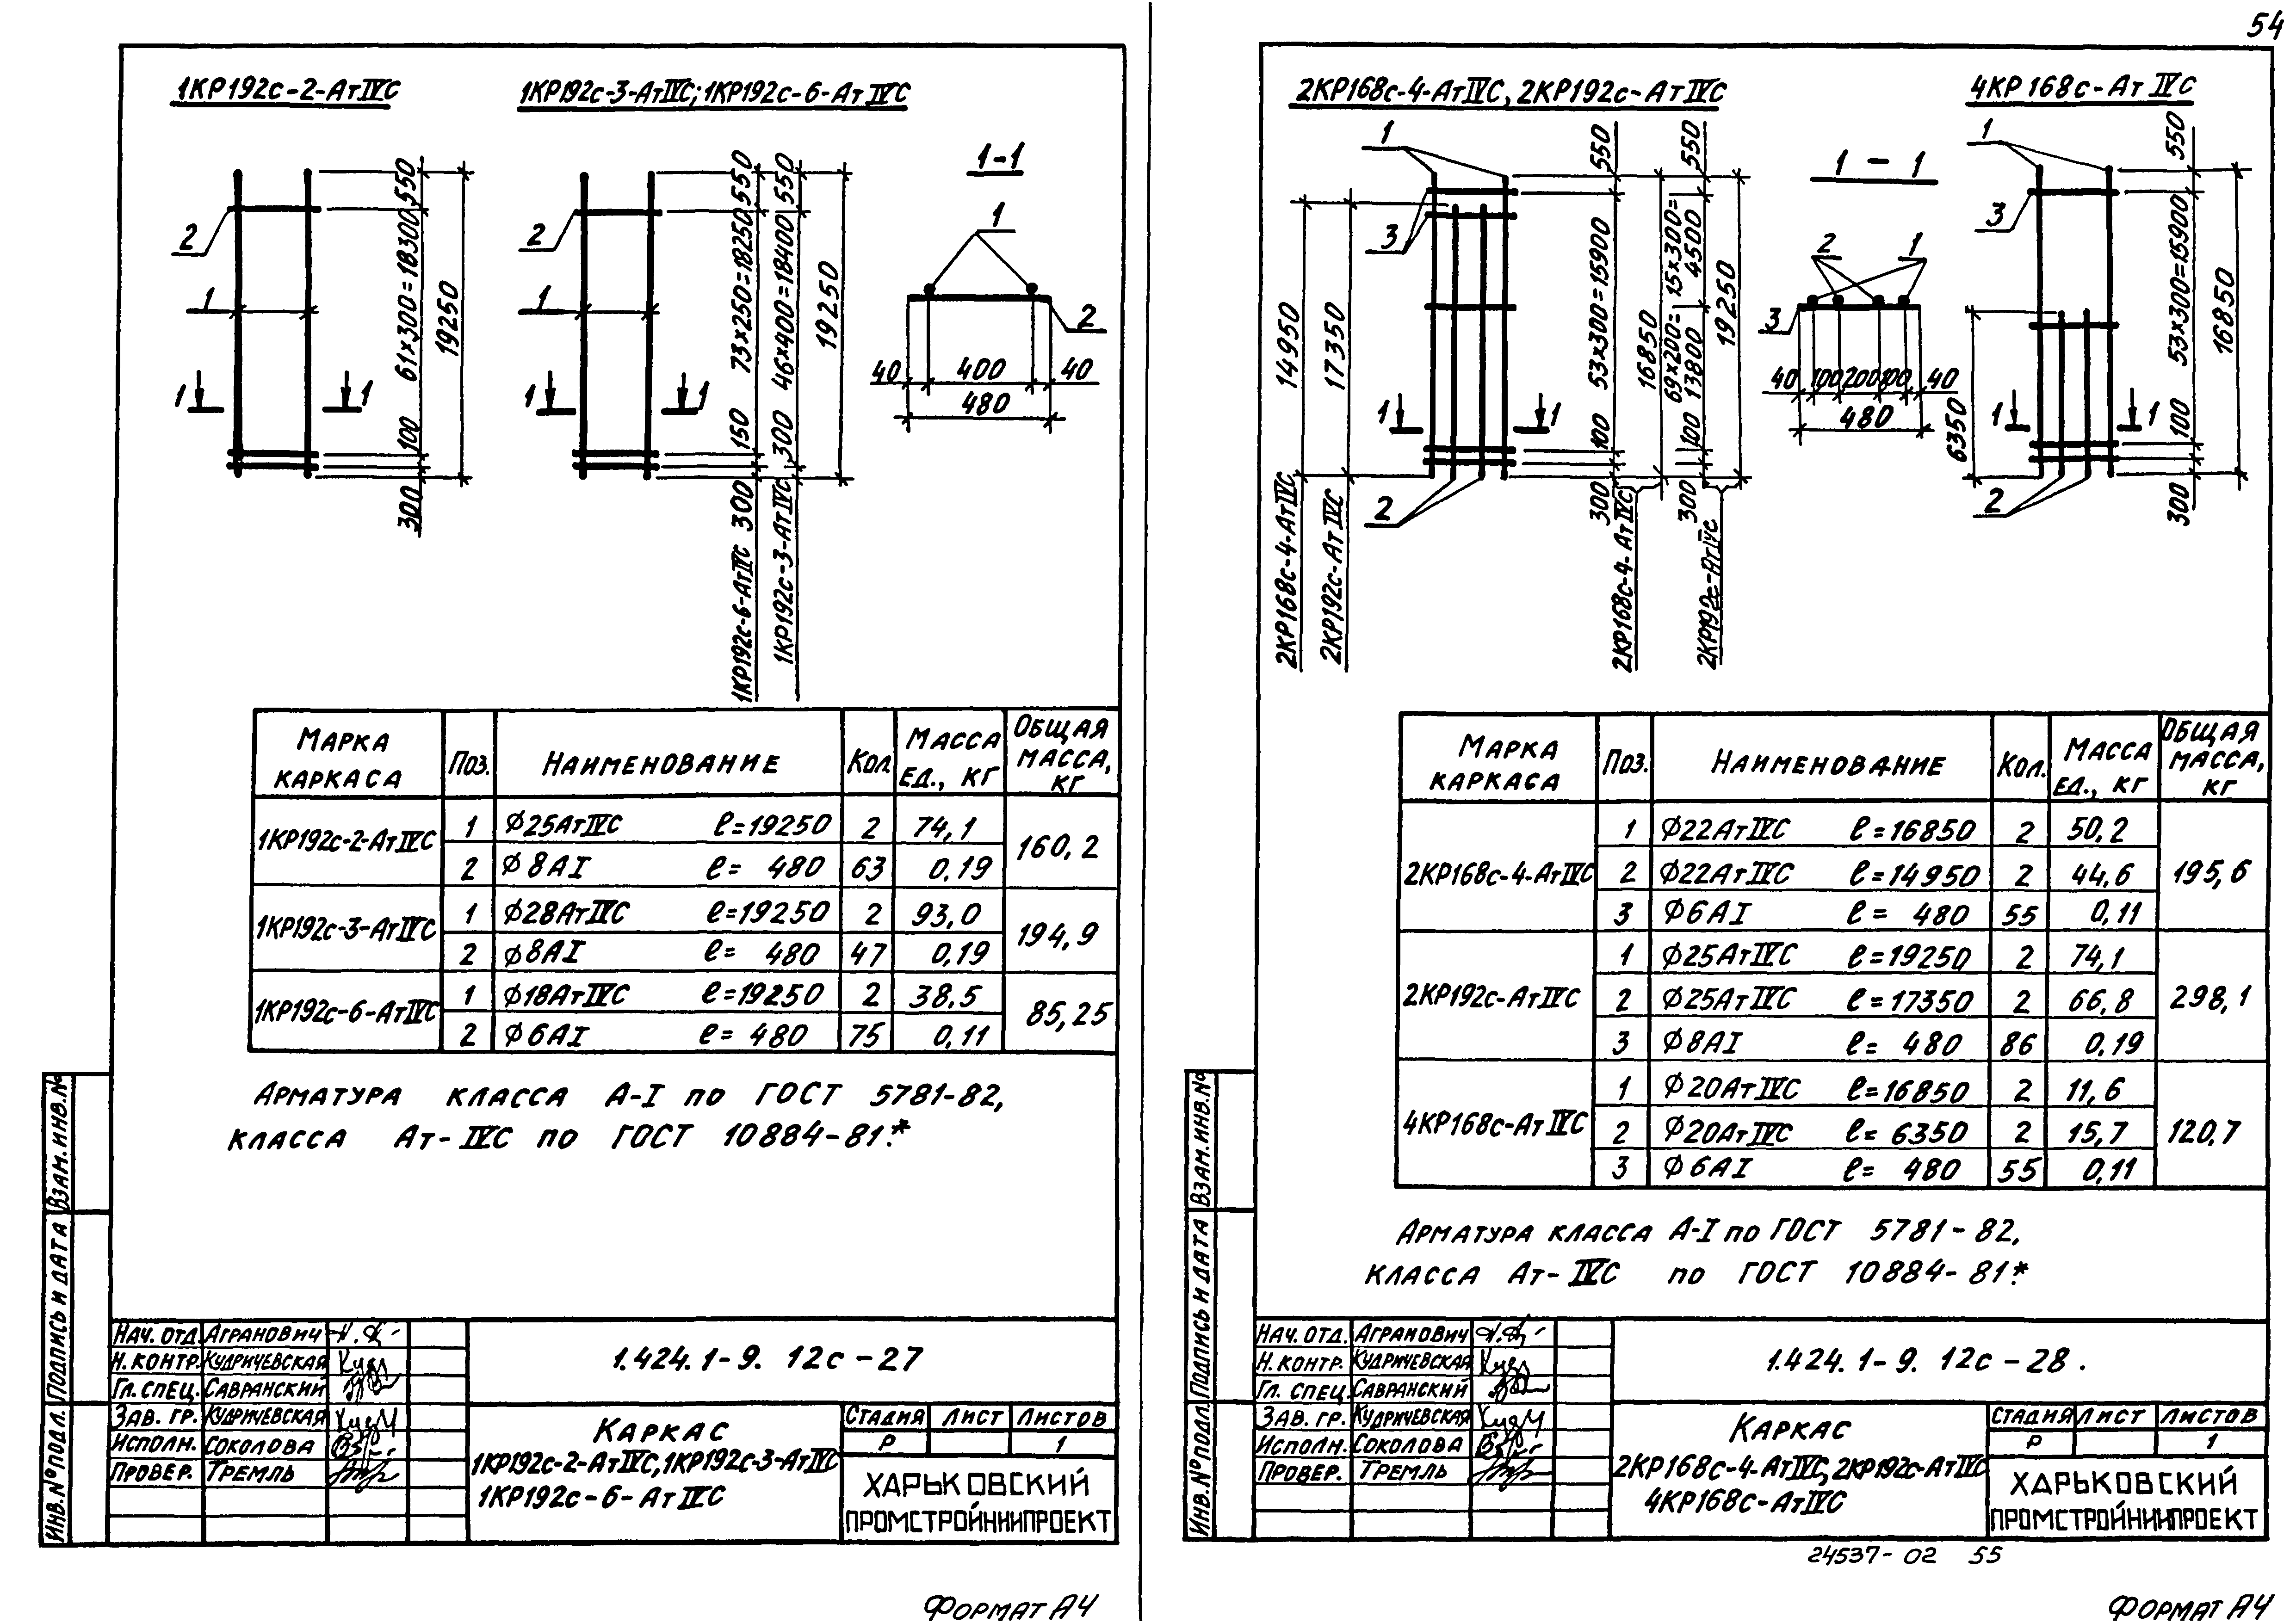 54
1КР192с-2-АтIVС
1КР192с-3-АтIVС; 1КР192с-6-АтIVС
1-1
2
1
1
1
550
61×300=18300
100
300
19250
2
1
1
1
550
73×250=18250
150
300
1КР192с-6-АтIVС
550
46×400=18400
300
1КР192с-3-АтIVС
19250
1
2
40
400
40
480
МАРКА КАРКАСА
ПОЗ.
НАИМЕНОВАНИЕ
КОЛ.
МАССА ЕД., КГ
ОБЩАЯ МАССА, КГ
1КР192с-2-АтIVС
1 ϕ25АтIVС ℓ=19250 2 74,1
160,2
2 ϕ8АI ℓ= 480 63 0,19
1КР192с-3-АтIVС
1 ϕ28АтIVС ℓ=19250 2 93,0
194,9
2 ϕ8АI ℓ= 480 47 0,19
1КР192с-6-АтIVС
1 ϕ18АтIVС ℓ=19250 2 38.5
85,25
2 ϕ6АI ℓ= 480 75 0,11
АРМАТУРА КЛАССА А-I ПО ГОСТ 5781-82,
КЛАССА Ат-IVС ПО ГОСТ 10884-81.*
ВЗАМ. ИНВ.№
ПОДПИСЬ И ДАТА
ИНВ.№ ПОДЛ.
НАЧ. ОТД. АГРАНОВИЧ
Н. КОНТР. КУДРИЧЕВСКАЯ
ГЛ. СПЕЦ. САВРАНСКИЙ
ЗАВ. ГР. КУДРИЧЕВСКАЯ
ИСПОЛН. СОКОЛОВА
ПРОВЕР. ТРЕМЛЬ
1.424.1-9. 12с-27
КАРКАС
1КР192с-2-АтIVС, 1КР192с-3-АтIVС
1КР192с-6-АтIVС
СТАДИЯ ЛИСТ ЛИСТОВ
Р 1
ХАРЬКОВСКИЙ
ПРОМСТРОЙНИИПРОЕКТ
ФОРМАТ А4
2КР168с-4-АтIVС, 2КР192с-АтIVС
4КР168с-АтIVС
1-1
1
3
2
1
1
14950
2КР168с-4-АтIVС
17350
2КР192с-АтIVС
550
53×300=15900
100
300
16850
2КР168с-4-АтIVС
550
15×300=
4500
69×200=
13800
100
300
19250
2КР192с-АтIVС
2
1
3
40
100
200
100
40
480
1
3
1
1
2
6350
550
53×300=15900
100
300
16850
МАРКА КАРКАСА
ПОЗ.
НАИМЕНОВАНИЕ
КОЛ.
МАССА ЕД., КГ
ОБЩАЯ МАССА, КГ
2КР168с-4-АтIVС
1 ϕ22АтIVС ℓ=16850 2 50,2
2 ϕ22АтIVС ℓ=14950 2 44,6
195,6
3 ϕ6АI ℓ= 480 55 0,11
2КР192с-АтIVС
1 ϕ25АтIVС ℓ=19250 2 74,1
2 ϕ25АтIVС ℓ=17350 2 66,8
298,1
3 ϕ8АI ℓ= 480 86 0,19
4КР168с-АтIVС
1 ϕ20АтIVС ℓ=16850 2 11,6
2 ϕ20АтIVС ℓ= 6350 2 15,7
120,7
3 ϕ6АI ℓ= 480 55 0,11
АРМАТУРА КЛАССА А-I ПО ГОСТ 5781-82,
КЛАССА Ат-IVС ПО ГОСТ 10884-81.*
ВЗАМ. ИНВ.№
ПОДПИСЬ И ДАТА
ИНВ.№ ПОДЛ.
НАЧ. ОТД. АГРАНОВИЧ
Н. КОНТР. КУДРИЧЕВСКАЯ
ГЛ. СПЕЦ. САВРАНСКИЙ
ЗАВ. ГР. КУДРИЧЕВСКАЯ
ИСПОЛН. СОКОЛОВА
ПРОВЕР. ТРЕМЛЬ
1.424.1-9. 12с-28.
КАРКАС
2КР168с-4-АтIVС, 2КР192с-АтIVС
4КР168с-АтIVС
СТАДИЯ ЛИСТ ЛИСТОВ
Р 1
ХАРЬКОВСКИЙ
ПРОМСТРОЙНИИПРОЕКТ
24537-02 55
ФОРМАТ А4